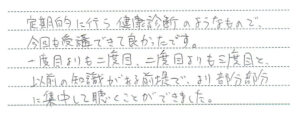 定期的に行う健康診断のようなもので、
今回も受講できて良かったです。
一度目よりも二度目、二度目よりも三度目と、
以前の知識がある前提で、より部分部分
に集中して聴くことができました。